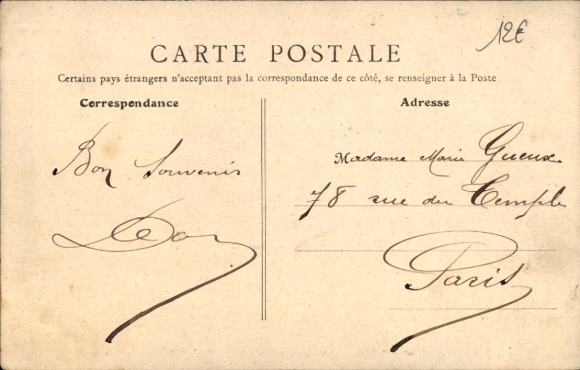 12€
CARTE POSTALE
Certains pays étrangers n'acceptant pas la correspondance de ce côté, se renseigner à la Poste
Correspondance
Adresse
Bon Souvenir
Madame Marie Gueux
78 rue du Temple
Paris